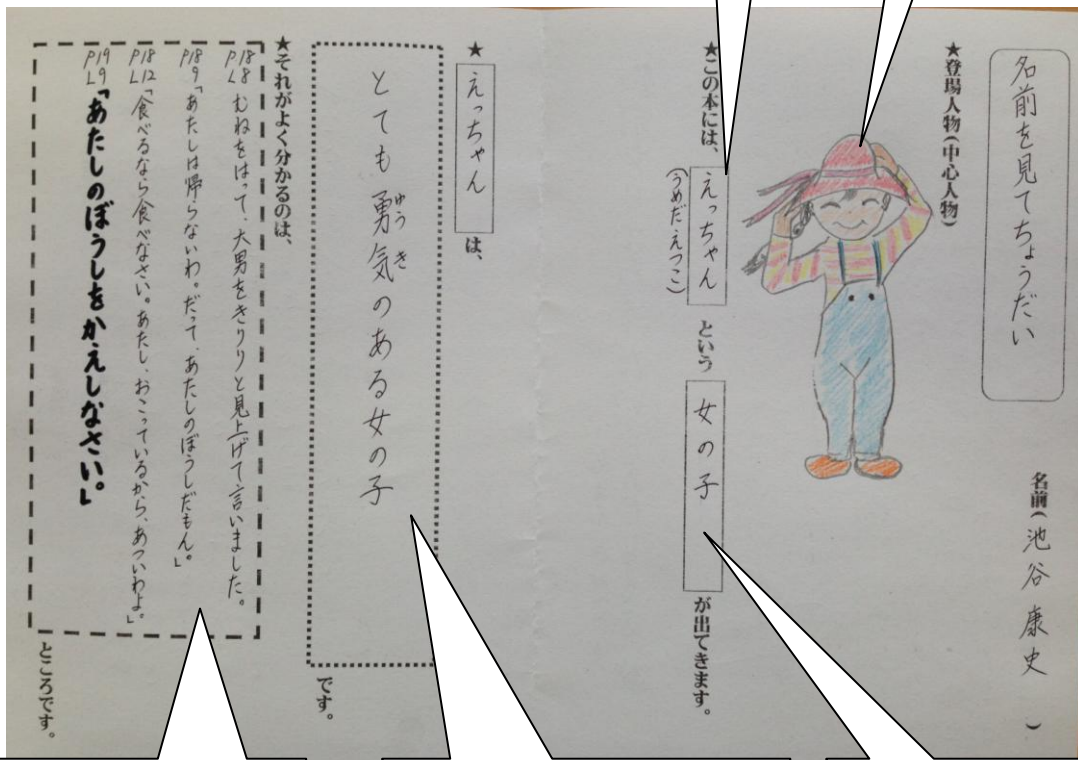 名前を見てちょうだい
名前（池谷康史）
★登場人物（中心人物）
★この本には、えっちゃんという女の子が出てきます。
（うめだえつこ）
★えっちゃんは、
とても勇気のある女の子です。
ゆうき
★それがよく分かるのは、
P18 L8 むねをはって、大男をきりりと見上げて言いました。
P18 9「あたしは帰らないわ。だって、あたしのぼうしだもん。」
P18 L12「食べるなら食べなさい。あたし、おこっているから、あついわよ。」
P19 L9「あたしのぼうしをかえしなさい。」
ところです。